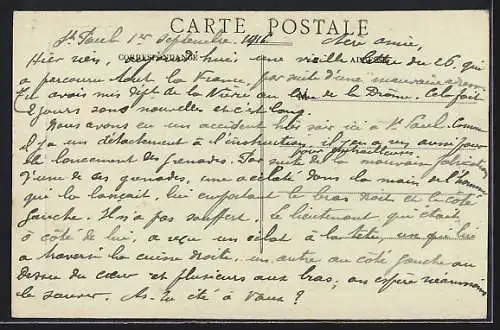 CARTE POSTALE
St Paul 1er Septembre. 1916 Chère amie,
CORRESPONDANCE ADRESSE
Hier rien, aujourd'hui une vieille lettre du 26, qui
a parcouru tout la France, par suite d'une mauvaise adresse.
Tu avais mis Dépt de la Nièvre au lieu de la Drôme. Cela fait
2 jours sans nouvelles et c'est long.
Nous avons eu un accident hier soir ici à St Paul. Comme
il y a un détachement à l'instruction, il y en a un aussi pour
pour mitrailleuses.
le lancement des grenades. Par suite de la mauvaise fabrication
d'une de ces grenades, une a éclaté dans la main de l'homme
qui la lançait, lui emportant le bras droit et le côté
gauche. Il n'a pas souffert. Le lieutenant qui était
à côté de lui, a reçu un éclat à la tête, un qui lui
a traversé la cuisse droite, un autre au côté gauche au
dessus du cœur et plusieurs aux bras, on espère néanmoins
le sauver. As-tu été à Vaux ?